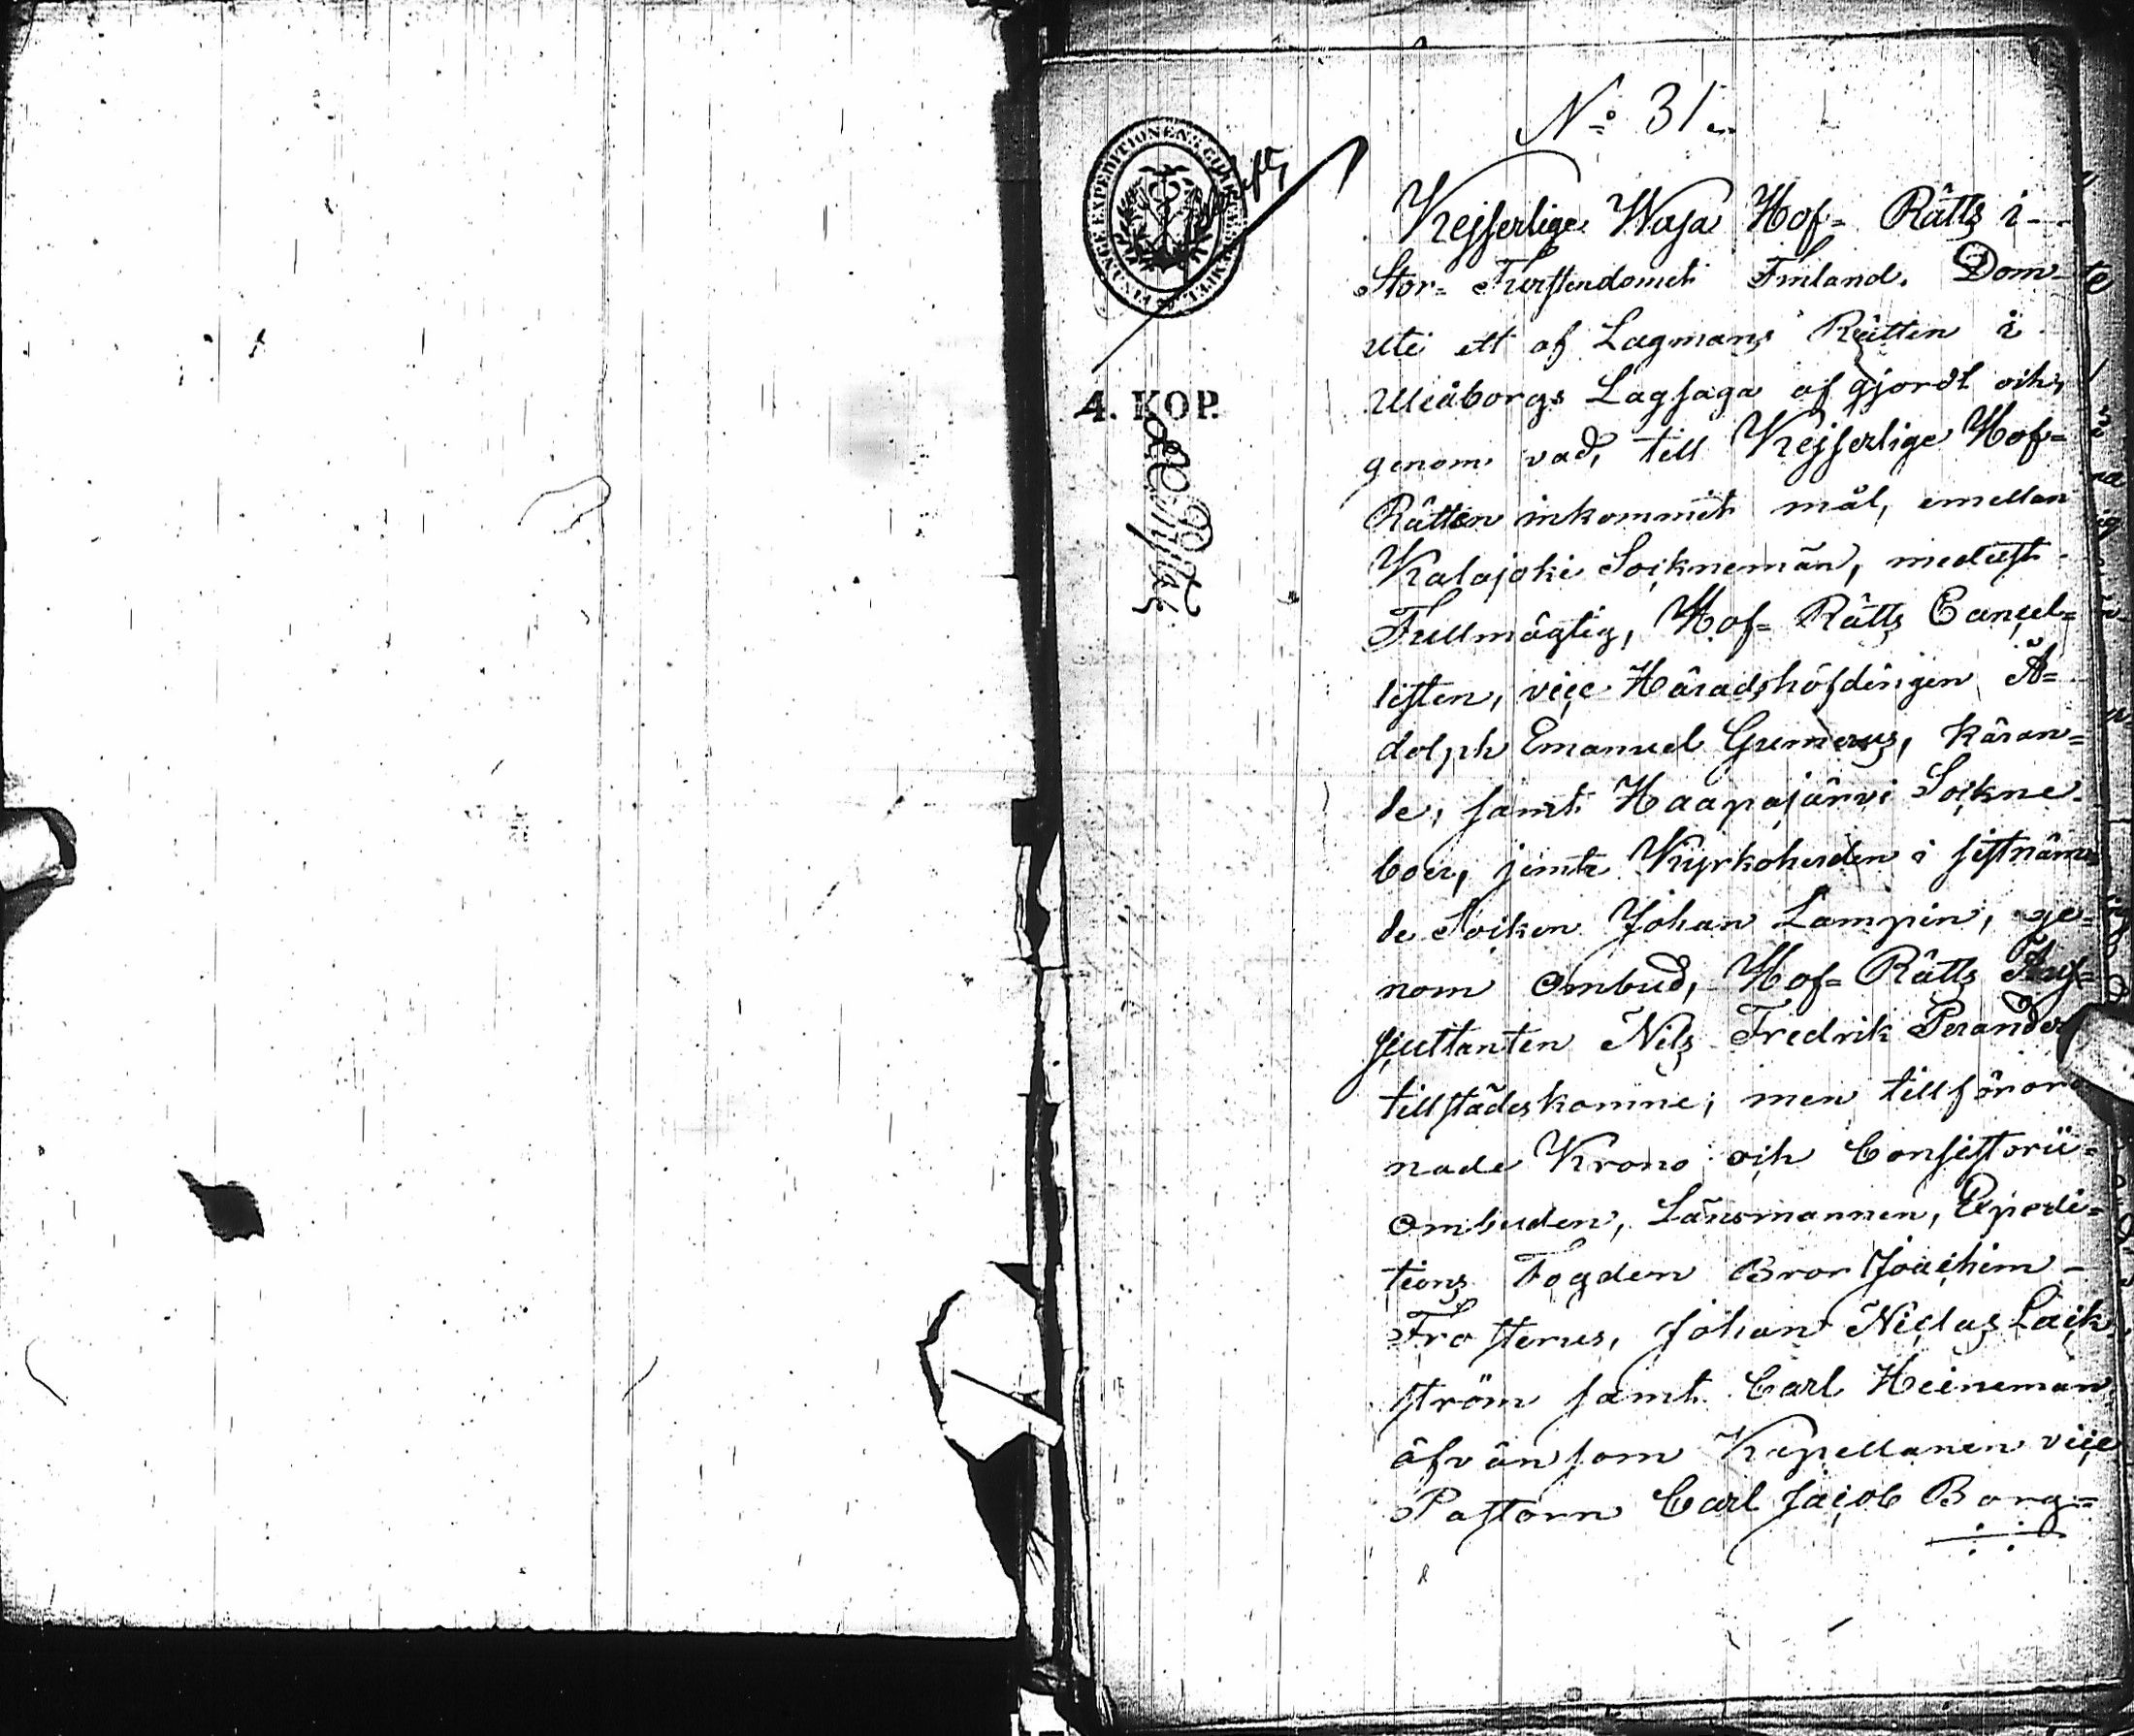 No 31.
Kejserlige Wasa Hof= Rätts i
Stor= Furstendömet Finland. Dom
uti ett af Lagmans Rätten i
Uleåborgs Lagsaga af gjordt och,
genom vad, till Kejserlige Hof=
Rätten inkommit mål, emellan
Kalajoki Socknemän, medelst
Fullmägtig, Hof= Rätts Cancel=
listen, vice Häradshöfdingen A=
dolph Emanuel Gumerus, käran=
de, samt Haapajärvi Sockne
boer, jemte Kyrkoherden i sistnämn
de Socken Johan Lampin, ge=
nom Ombud, Hof= Rätts Aus=
cultanten Nils Fredrik Perander
tillstädeskomne; men tillförord
nade Krono och Consistorii=
Ombuden, Länsmannen, Expedi=
tions Fogden Bror Joachim
Frosterus, Johan Niclas Lack
ström samt Carl Heineman
äfvänsom Kapellanen vice
Pastorn Carl Jacob Borg=
FINANCE EXPEDITIONENS CHARTÆ STÄMPEL
4. KOP.